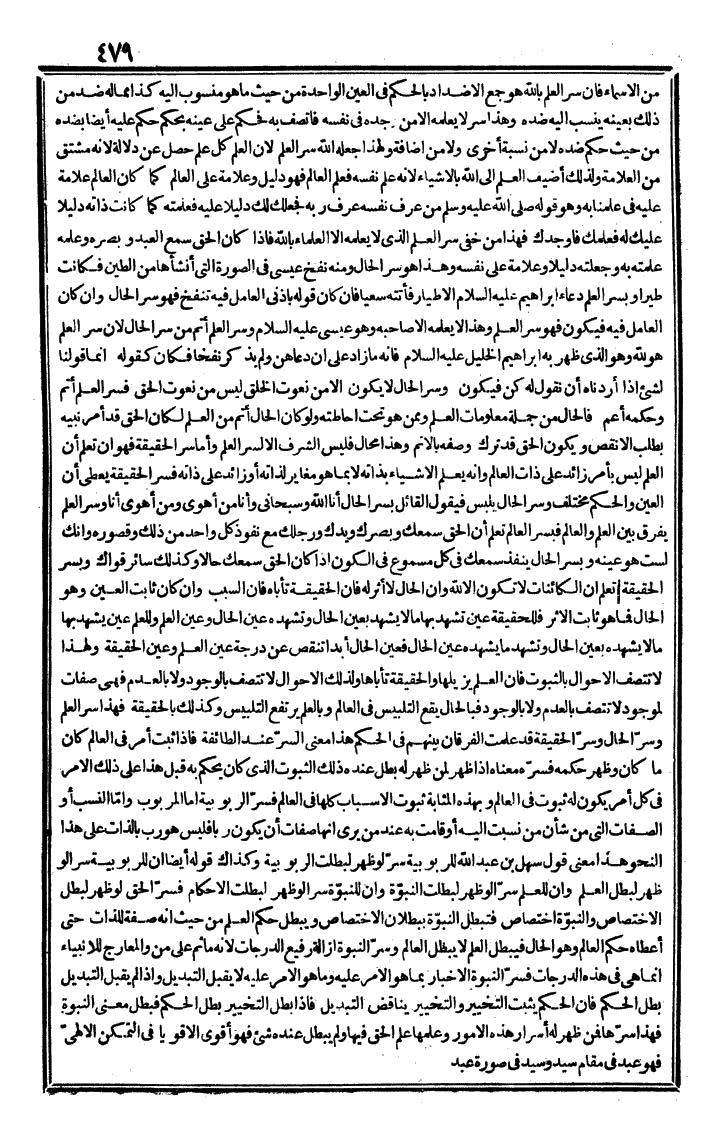 ٤٧٩
من الاسماء فان سر العلم بالله هو جمع الاضداد بالحكم فى العين الواحدة من حيث ما هو منسوب اليه كذا مما له ضد من
ذلك بعينه ينسب اليه ضده وهذا سر لا يعلمه الا من وجده فى نفسه فاتصف به فحكم على عينه بحكم حكم عليه أيضا بضده
من حيث حكم ضده لا من نسبة أخرى ولا من اضافة ولهذا جعله الله سر العلم لان العلم كل علم حصل عن دلالة لانه مشتق
من العلامة ولذلك أضيف العلم الى الله بالاشياء لانه علم نفسه فعلم العالم فهو دليل وعلامة على العالم كما كان العالم علامة
عليه فى علمنا به وهو قوله صلى الله عليه وسلم من عرف نفسه عرف ربه فجعلك لك دليلا عليه فعلمته كما كانت ذاته دليلا
عليك له فعلمك فاوجدك فهذا من خفى سر العلم الذى لا يعلمه الا العلماء بالله فاذا كان الحق سمع العبد وبصره وعلمه
علمته به وجعلته دليلا وعلامة على نفسه وهذا هو سر الحال ومنه نفخ عيسى فى الصورة التى أنشأها من الطين فكانت
طيرا وبسر العلم دعاء ابراهيم عليه السلام الاطيار فأتته سعيا فان كان قوله باذنى العامل فيه تنفخ فهو سر الحال وان كان
العامل فيه فيكون فهو سر العلم وهذا لا يعلمه الا صاحبه وهو عيسى عليه السلام وسر العلم أتم من سر الحال لان سر العلم
هو لله وهو الذى ظهر به ابراهيم الخليل عليه السلام فانه ما زاد على ان دعاهن ولم يذكر نفخا فكان كقوله انما قولنا
لشئ اذا أردناه أن نقول له كن فيكون وسر الحال لا يكون الا من نعوت الخلق ليس من نعوت الحق فسر العلم أتم
وحكمه أعم فالحال من جملة معلومات العلم وممن هو تحت احاطته ولو كان الحال أتم من العلم لكان الحق قد أمر نبيه
بطلب الانقص ويكون الحق قد ترك وصفه بالاتم وهذا محال فليس الشرف الا لسر العلم وأما سر الحقيقة فهو ان تعلم أن
العلم ليس بأمر زائد على ذات العالم وانه يعلم الاشياء بذاته لا بما هو مغاير لذاته أو زائد على ذاته فسر الحقيقة يعطى أن
العين والحكم مختلف وسر الحال يلبس فيقول القائل بسر الحال أنا الله وسبحانى وأنا من أهوى ومن أهوى أنا وسر العلم
يفرق بين العلم والعالم فبسر العالم تعلم أن الحق سمعك وبصرك ويدك ورجلك مع نفوذ كل واحد من ذلك وقصوره وانك
لست هو عينه وبسر الحال ينفذ سمعك فى كل مسموع فى الكون اذا كان الحق سمعك حالا وكذلك سائر قواك وبسر
الحقيقة تعلم ان الكائنات لا تكون الا لله وان الحال لا أثر له فان الحقيقة تأباه فان السبب وان كان ثابت العين وهو
الحال فما هو ثابت الاثر فللحقيقة عين تشهد بها ما لا يشهد بعين الحال وتشهده عين الحال وعين العلم وللعلم عين يشهد بها
ما لا يشهده بعين الحال وتشهد ما يشهده عين الحال فعين الحال أبدا تنقص عن درجة عين العلم وعين الحقيقة ولهذا
لا تتصف الاحوال بالثبوت فان العلم يزيلها والحقيقة تأباها ولذلك الاحوال لا تتصف بالوجود ولا بالعدم فهى صفات
لموجود لا تتصف بالعدم ولا بالوجود فبالحال يقع التلبيس فى العالم وبالعلم يرتفع التلبيس وكذلك بالحقيقة فهذا سر العلم
وسر الحال وسر الحقيقة قد علمت الفرقان بينهم فى الحكم هذا معنى السر عند الطائفة فاذا ثبت أمر فى العالم كان
ما كان وظهر حكمه فسره معناه اذا ظهر لمن ظهر له بطل عنده ذلك الثبوت الذى كان يحكم به قبل هذا على ذلك الامر
فى كل أمر يكون له ثبوت فى العالم وبهذه المثابة ثبوت الاسباب كلها فى العالم فسر الربوبية اما المربوب واما النسب أو
الصفات التى من شأن من نسبت اليه أو قامت به عند من يرى انها صفات أن يكون ربا فليس هو رب بالذات على هذا
النحو هذا معنى قول سهل بن عبد الله للربوبية سر لو ظهر لبطلت الربوبية وكذلك قوله أيضا ان للربوبية سر الو
ظهر لبطل العلم وان للعلم سر الو ظهر لبطلت النبوة وان للنبوة سر الو ظهر لبطلت الاحكام فسر الحق لو ظهر لبطل
الاختصاص والنبوة اختصاص فتبطل النبوة ببطلان الاختصاص ويبطل حكم العلم من حيث انه صفة للذات حتى
أعطاه حكم العالم وهو الحال فيبطل العلم لا يبطل العالم وسر النبوة ازالة رفيع الدرجات لانه ما ثم على من والمعارج للانبياء
انما هى فى هذه الدرجات فسر النبوة الاخبار بما هو الامر عليه وما هو الامر عليه لا يقبل التبديل واذا لم يقبل التبديل
بطل الحكم فان الحكم يثبت التخيير والتخيير يناقض التبديل فاذا بطل التخيير بطل الحكم فبطل معنى النبوة
فهذا سرها فمن ظهر له أسرار هذه الامور وعلمها علم الحق فيها ولم يبطل عنده شئ فهو أقوى الاقويا فى التمكن الالهى
فهو عبد فى مقام سيد وسيد فى صورة عبد